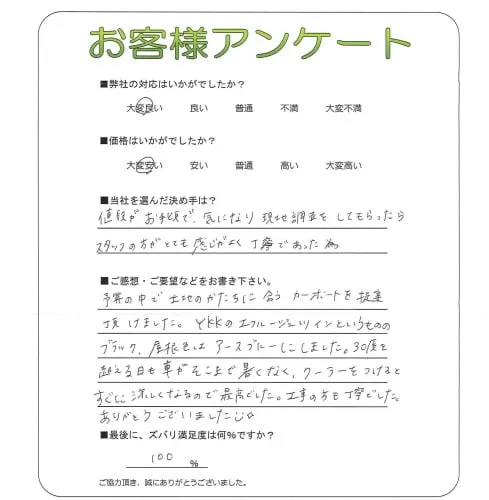 お客様アンケート
■弊社の対応はいかがでしたか？
大変良い 良い 普通 不満 大変不満
■価格はいかがでしたか？
大変安い 安い 普通 高い 大変高い
■当社を選んだ決め手は？
値段がお手頃で、気になり現地調査をしてもらったら
スタッフの方がとても感じがよく丁寧であった為
■ご感想・ご要望などをお書き下さい。
予算の中で土地のかたちに合うカーポートを提案
頂けました。YKKのエフルージュツインというものの
ブラック、屋根はアースブルーにしました。30度を
超える日も車がそこまで暑くなく、クーラーをつけると
すぐに涼しくなるので最高でした。工事の方も丁寧でした。
ありがとうございました
■最後に、ズバリ満足度は何%ですか？
100 %
ご協力頂き、誠にありがとうございました。